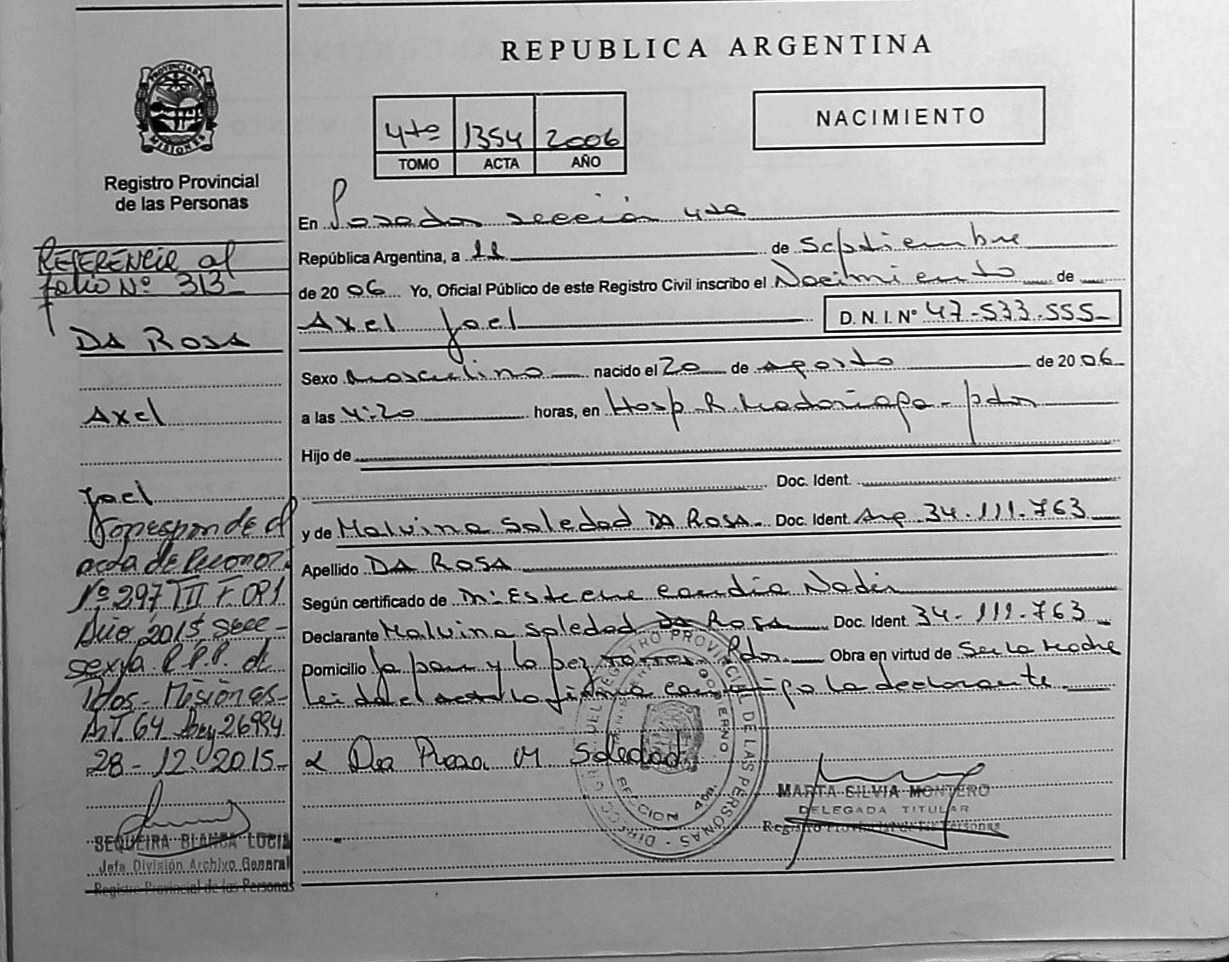 REPUBLICA ARGENTINA
PROVINCIA DE MISIONES
Registro Provincial
de las Personas
4to 1354 2006
TOMO ACTA AÑO
NACIMIENTO
REFERENCIA al
folio Nº 313
DA ROSA
Axel
Joel
Corresponde al
acta de Reconoc.
Nº 297 T III F 091
Año 2015 Secc-
sexta R.P.P. de
Pdos - Misiones-
ArT. 64 Ley 26994
28-12-2015-
SEQUEIRA BLANCA LUCIA
Jefa División Archivo General
Registro Provincial de las Personas
En Posadas sección 4ta
República Argentina, a 11 de Septiembre
de 2006 Yo, Oficial Público de este Registro Civil inscribo el Nacimiento de
Axel Joel D. N. I. Nº 47-533-555-
Sexo masculino nacido el 20 de agosto de 2006
a las 4:20 horas, en Hosp. R. Madariaga - pdas
Hijo de
Doc. Ident.
y de Malvina Soledad DA ROSA Doc. Ident. Arg. 34.111.763
Apellido DA ROSA
Según certificado de
Declarante Malvina Soledad Da Rosa Doc. Ident. 34-111-763
Domicilio Pdas. Obra en virtud de Ser la Madre
leida el acta la firma conmigo la declarante
Da Rosa M Soledad
REGISTRO PROVINCIAL DE LAS PERSONAS
GOBIERNO
SECCION 4ta
MARTA SILVIA MONTERO
DELEGADA TITULAR
Registro Provincial de las Personas